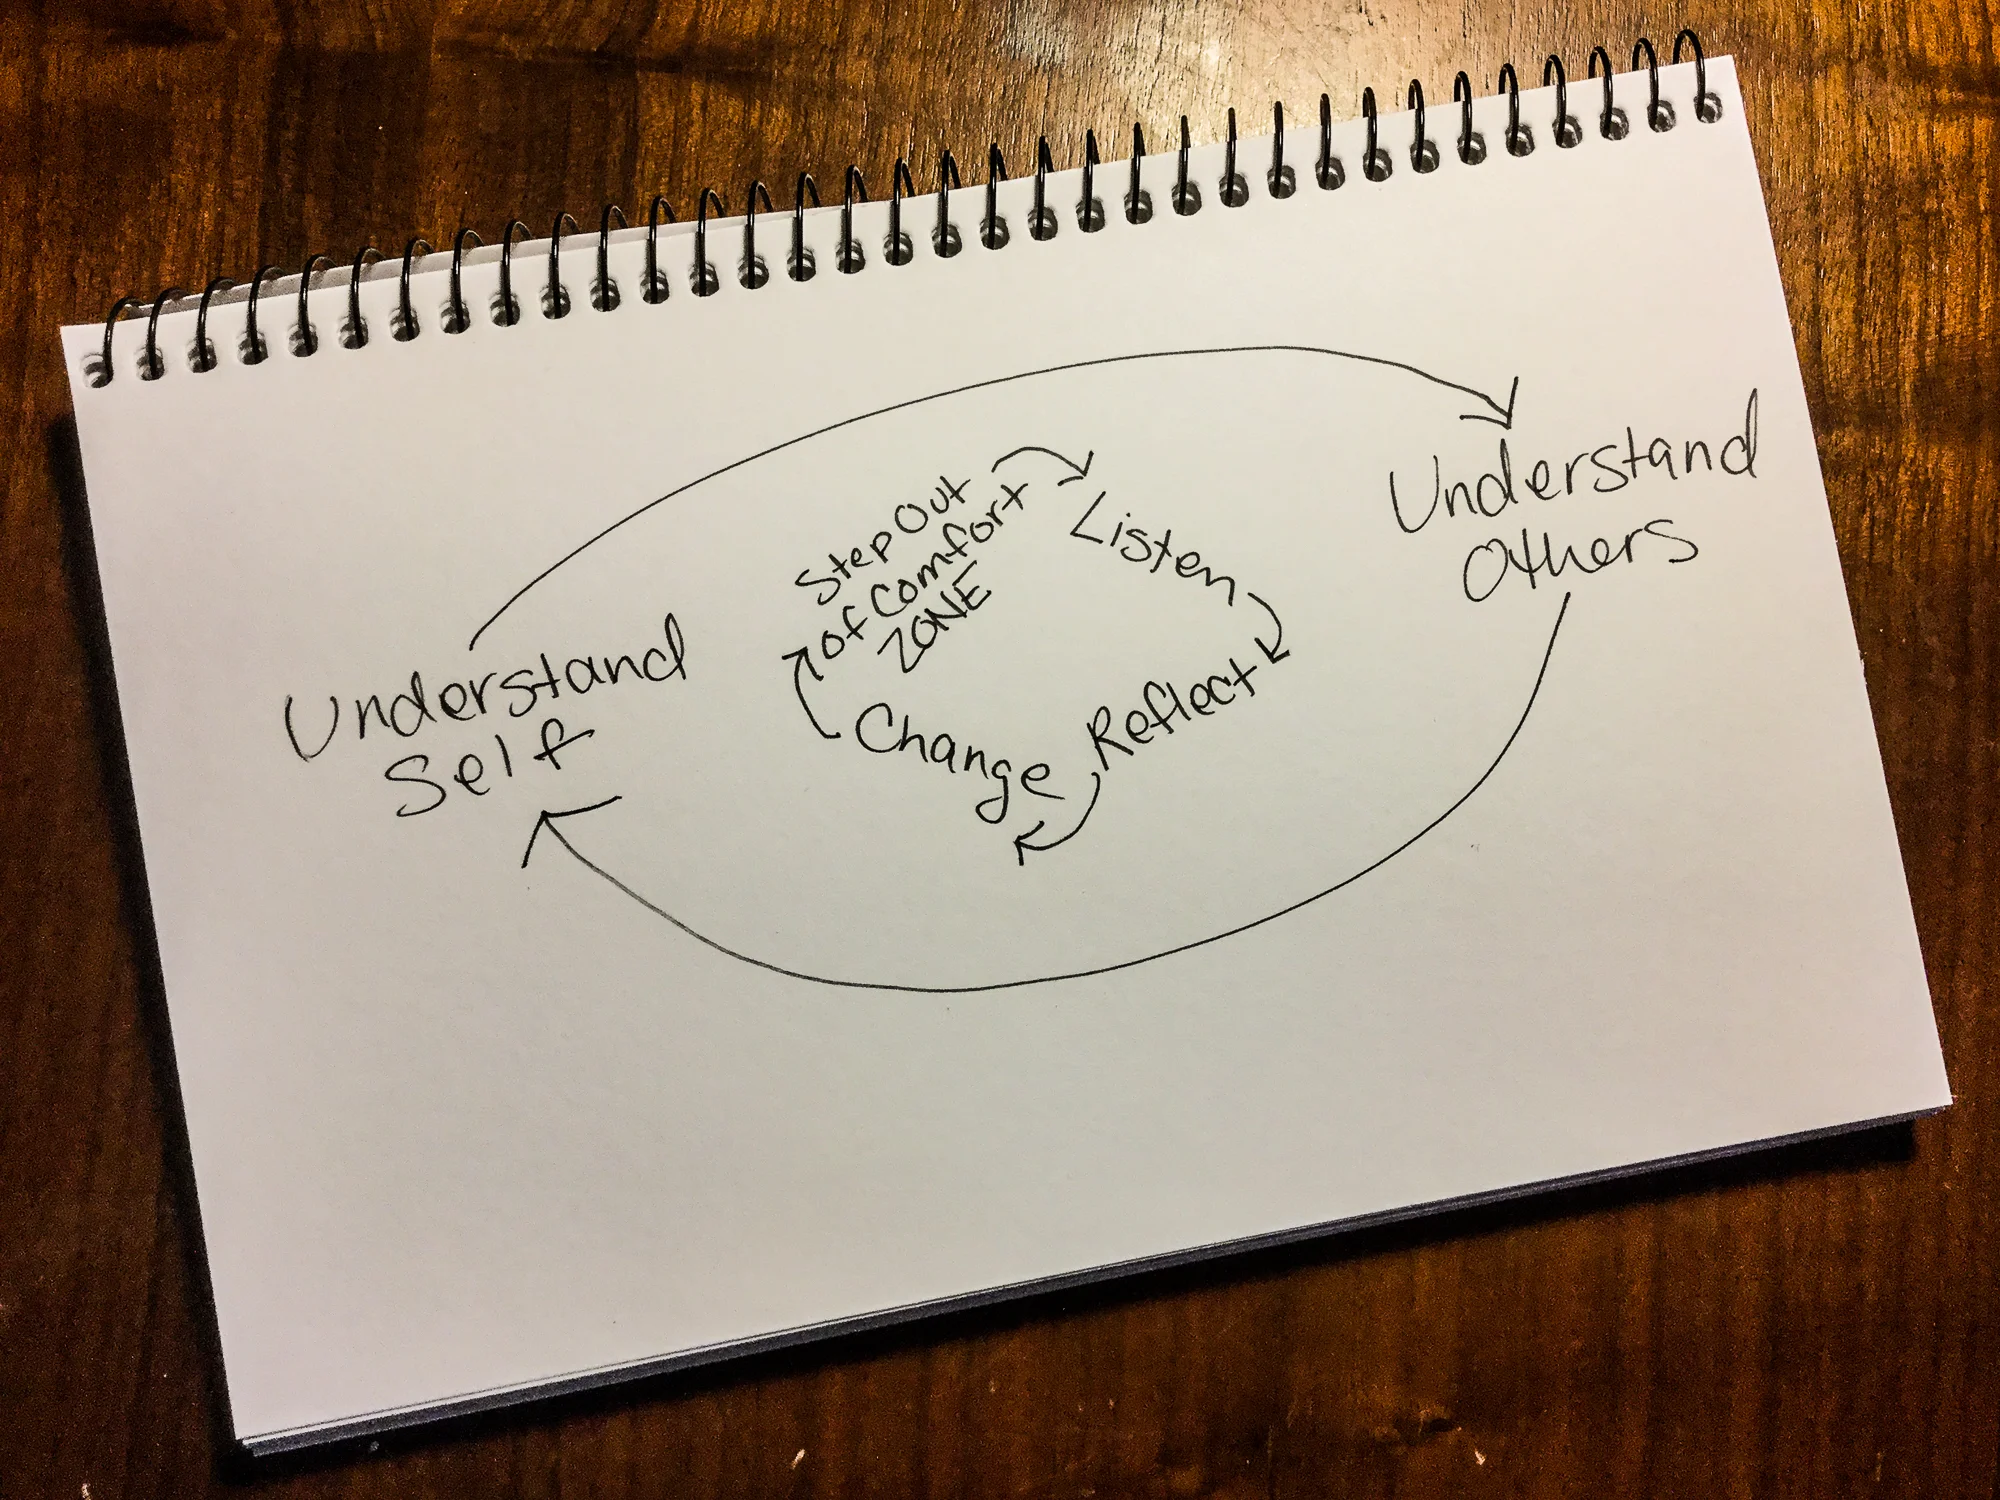 Understand
Self
Step Out
of Comfort
ZONE
Listen
Reflect
Change
Understand
Others